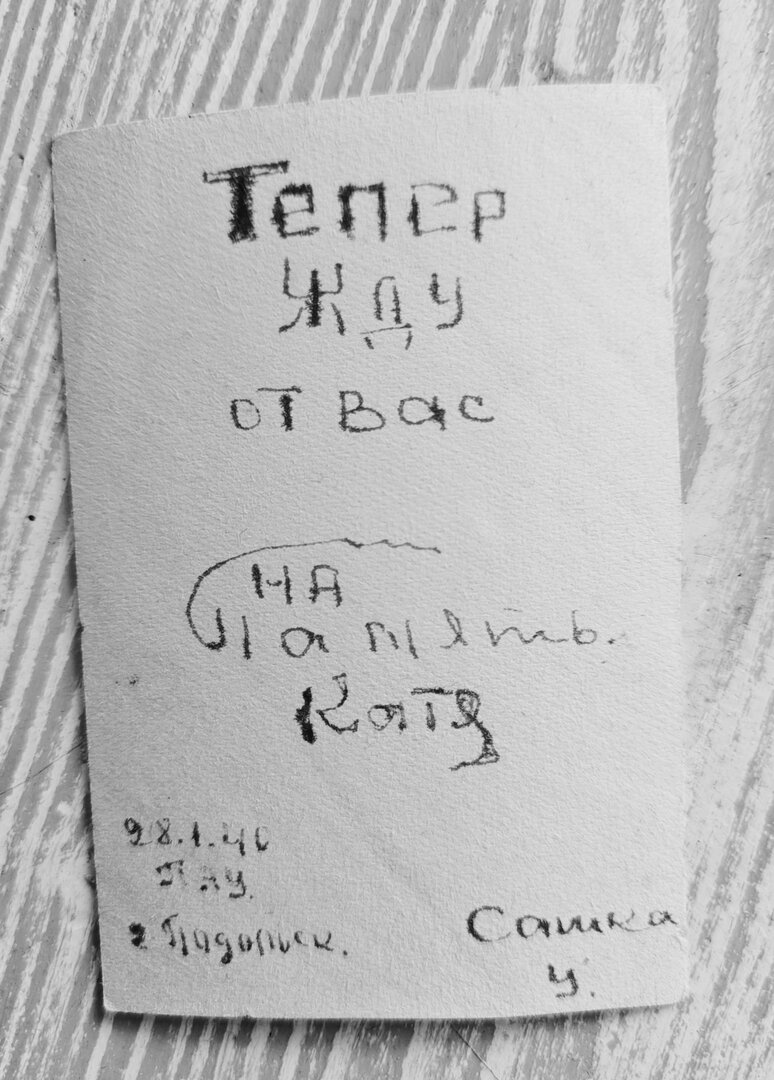 Тепер
Жду
от вас
на
память.
Катя
28.1.40
ПАУ.
г Падольск.
Сашка
У.